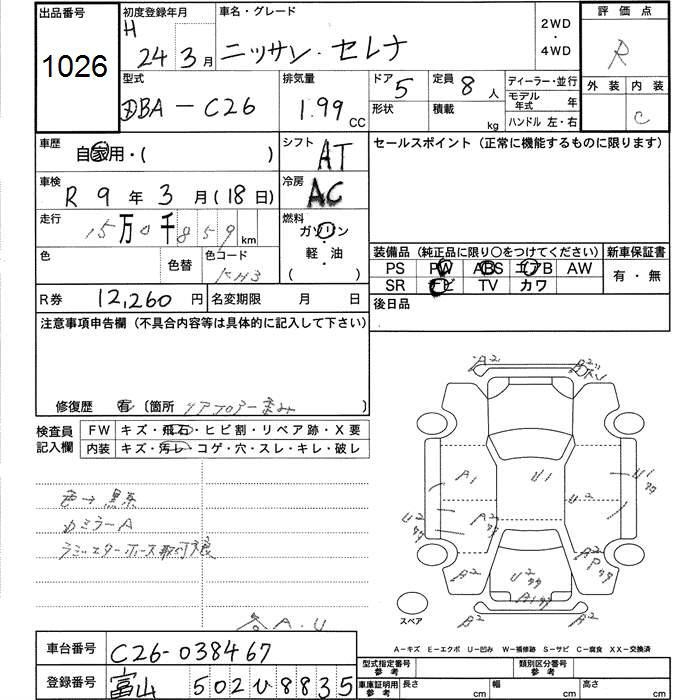 出品番号 初度登録年月 車名・グレード 2WD・4WD 評価点
1026 H 24 3月 ニッサン・セレナ R
型式 排気量 ドア 5 定員 8人 ディーラー・並行 外装 内装
DBA-C26 1.99 CC 形状 積載 kg モデル年式 年 C
ハンドル 左・右
車歴 自家用・( ) シフト AT セールスポイント(正常に機能するものに限ります)
車検 R 9年 3月(18日) 冷房 AC
走行 15万0千859km 燃料 ガソリン
軽・油
( )
色 色替 色コード KH3
装備品(純正品に限り○をつけてください) 新車保証書
PS PW ABS エアB AW 有・無
SR ナビ TV カワ
R券 12,260円 名変期限 月 日 後日品
注意事項申告欄(不具合内容等は具体的に記入して下さい)
修復歴 有 〔箇所 リアフロアー歪み 〕
検査員記入欄 FW キズ・飛石・ヒビ割・リペア跡・X要
内装 キズ・汚レ・コゲ・穴・スレ・キレ・破レ
色→黒系
カミラーA
A.U
A2
A1 U1 U1
U2
U2 A2
A2 U2 A2
A1
B2 A2
スペア
A-キズ E-エクボ U-凹み W-補修跡 S-サビ C-腐食 XX-交換済
車台番号 C26-038467
登録番号 富山 502 ひ 8835
型式指定番号 参考 類別区分番号 参考
車庫証明用 参考 長さ cm 幅 cm 高さ cm